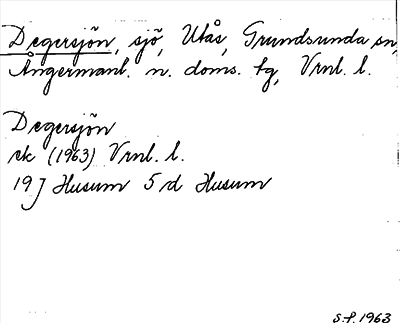 Degersjön, sjö, Utås, Grundsunda sn,
Ångermanl. n. doms. tg, Vrnl. l.
Degersjön
ek (1963) Vrnl. l.
19 J Husum 5 d Husum
S.F. 1963